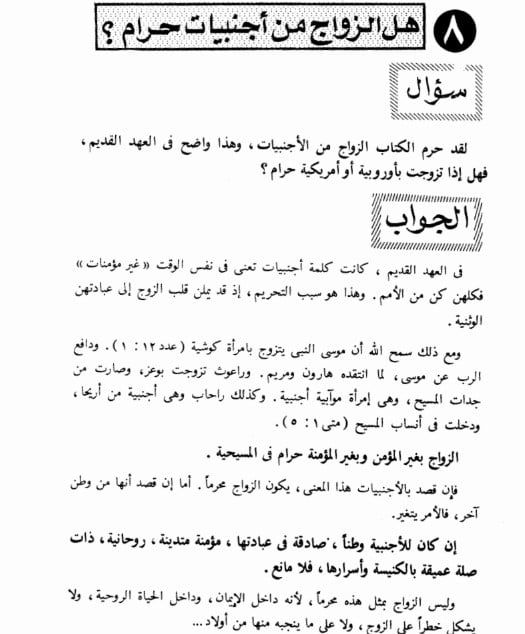 ٨
هل الزواج من أجنبيات حرام ؟
سؤال
لقد حرم الكتاب الزواج من الأجنبيات ، وهذا واضح فى العهد القديم ،
فهل إذا تزوجت بأوروبية أو أمريكية حرام ؟
الجواب
فى العهد القديم ، كانت كلمة أجنبيات تعنى فى نفس الوقت «غير مؤمنات»
فكلهن كن من الأمم . وهذا هو سبب التحريم ، إذ قد يملن قلب الزوج إلى عبادتهن
الوثنية .
ومع ذلك سمح الله أن موسى النبى يتزوج بامرأة كوشية ( عدد ١٢ : ١ ) . ودافع
الرب عن موسى ، لما انتقده هارون ومريم . وراعوث تزوجت بوعز ، وصارت من
جدات المسيح ، وهى إمرأة موآبية أجنبية . وكذلك راحاب وهى أجنبية من أريحا ،
ودخلت فى أنساب المسيح ( متى ١ : ٥ ) .
الزواج بغير المؤمن وبغير المؤمنة حرام فى المسيحية .
فإن قصد بالأجنبيات هذا المعنى ، يكون الزواج محرماً . أما إن قصد أنها من وطن
آخر ، فالأمر يتغير.
إن كان للأجنبية وطناً ، صادقة فى عبادتها ، مؤمنة متدينة ، روحانية ، ذات
صلة عميقة بالكنيسة وأسرارها ، فلا مانع .
وليس الزواج بمثل هذه محرماً ، لأنه داخل الإيمان ، وداخل الحياة الروحية ، ولا
يشكل خطراً على الزوج ، ولا على ما ينجبه منها من أولاد ...